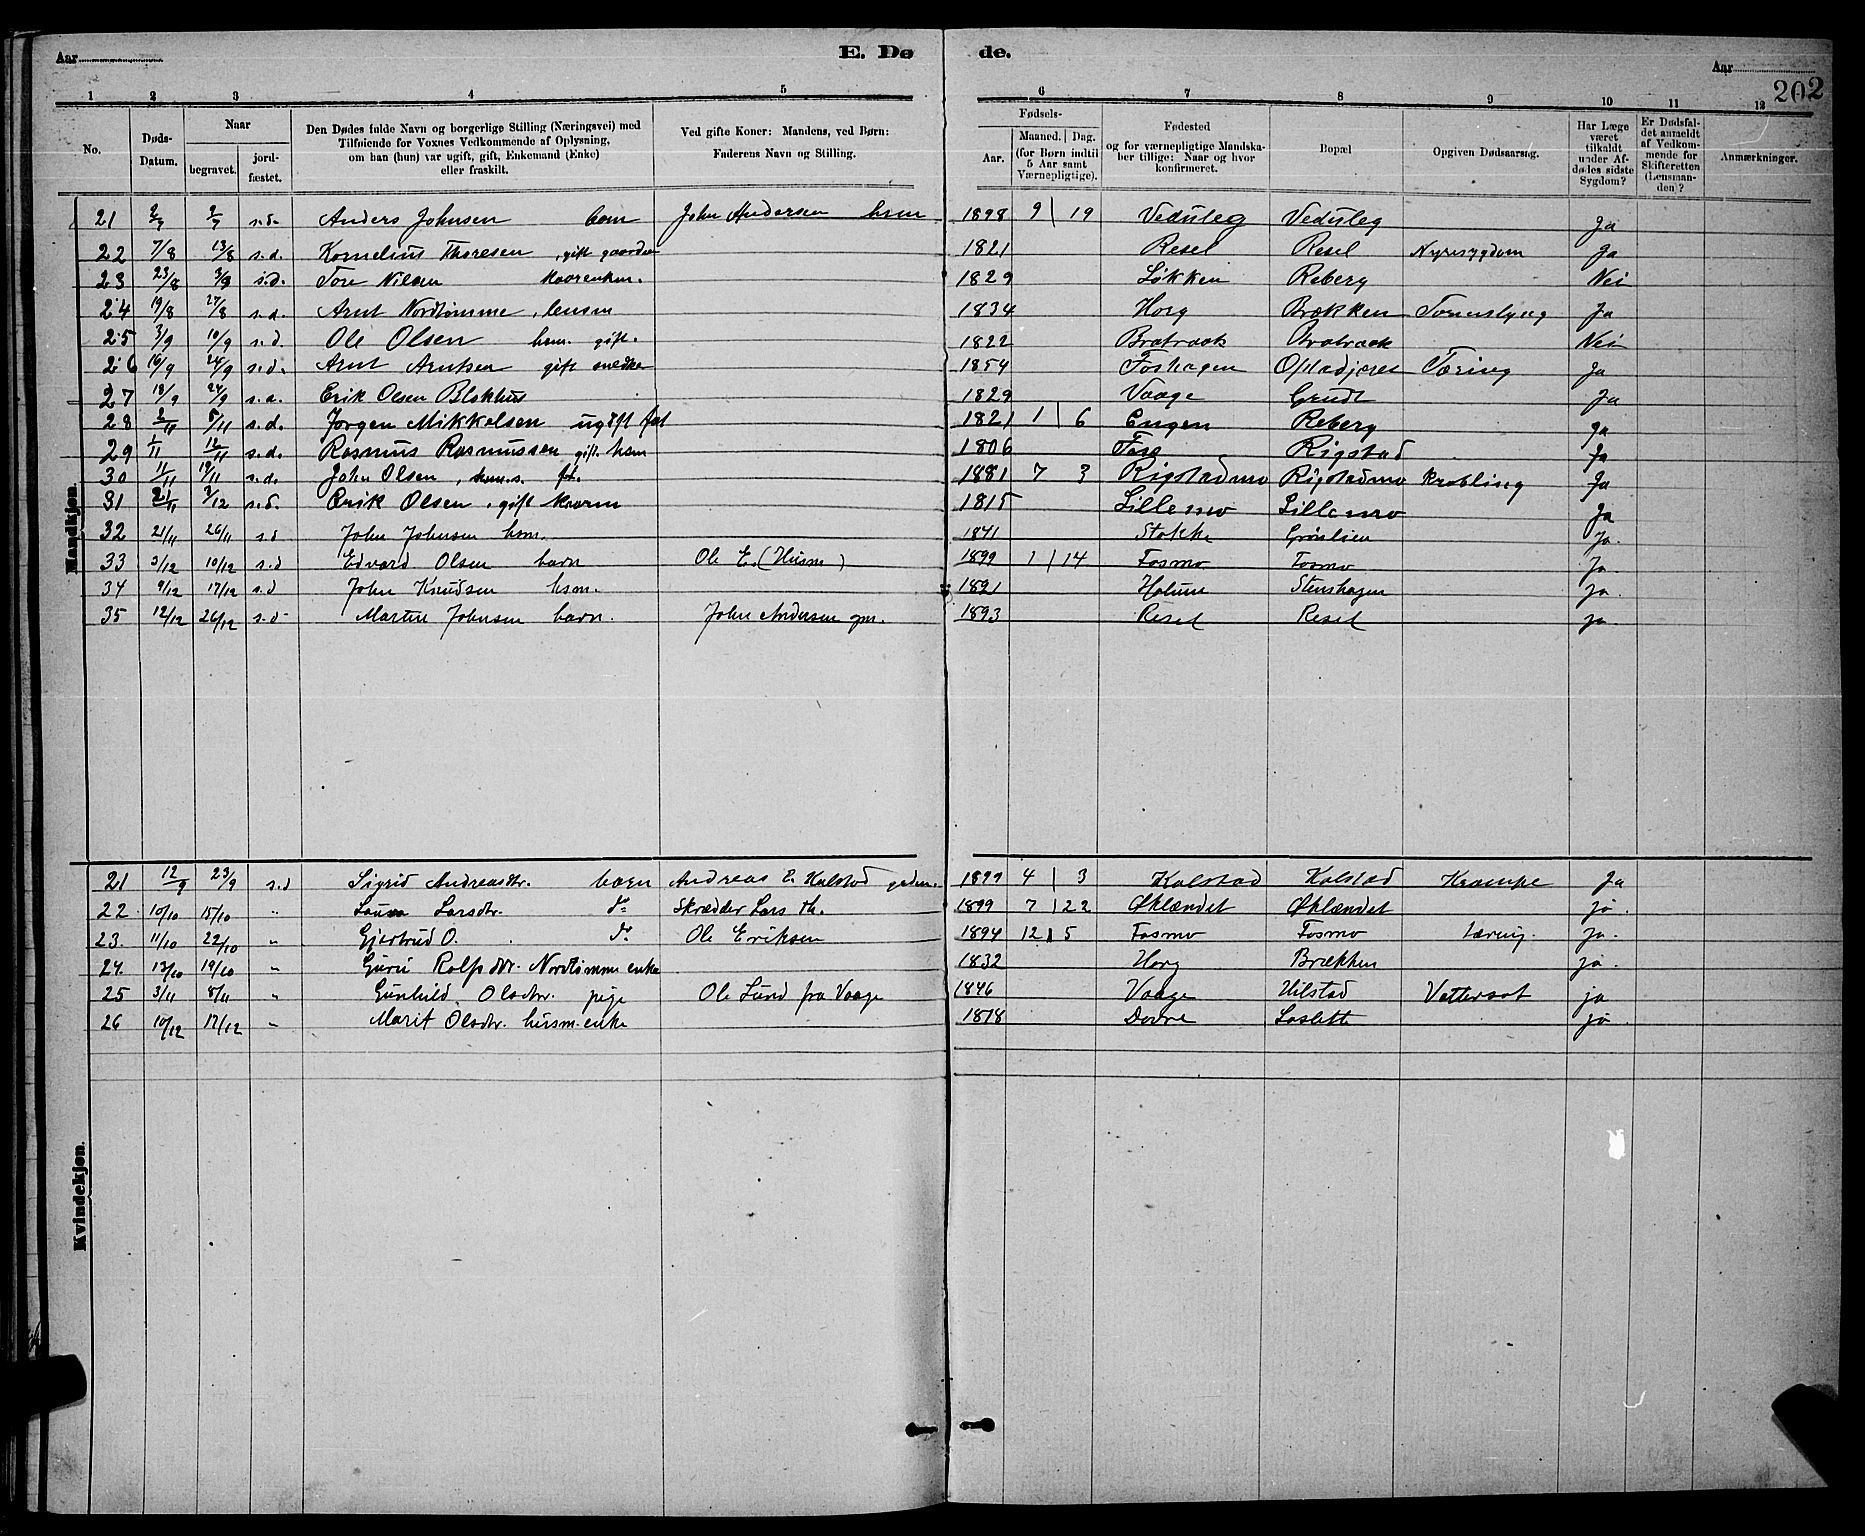 Aar
E. Dø
de.
Aar
202
1 2 3 4 5 6 7 8 9 10 11 12
No.
Døds-Datum.
Naar
begravet.
jord-fæstet.
Den Dødes fulde Navn og borgerlige Stilling (Næringsvei) med
Tilføiende for Voxnes Vedkommende af Oplysning,
om han (hun) var ugift, gift, Enkemand (Enke)
eller fraskilt.
Ved gifte Koner: Mandens, ved Børn:
Faderens Navn og Stilling.
Fødsels-
Aar.
Maaned. Dag.
(for Børn indtil
5 Aar samt
Værnepligtige).
Fødested
og for værnepligtige Mandska-
ber tillige: Naar og hvor
konfirmeret.
Bopæl
Opgiven Dødsaarsag.
Har Læge
været
tilkaldt
under Af-
dødes sidste
Sygdom?
Er Dødsfal-
det anmeldt
af Vedkom-
mende for
Skifteretten
(Lensman-
den)?
Anmærkninger.
Mandkjøn.
21 s.d. Anders Johnsen barn John Andersen hsm 1898 9 | 19 Veduleg Veduleg Ja
22 7/8 13/8 s.d. Kornelius Thoresen, gift gaardm 1821 Resel Resel Nyresygdom Ja
23 23/8 3/9 s.d. Tore Nilsen 1829 Løkken Reberg Nei
24 19/8 27/8 s.d. Arnt Nordtømme, lensm 1834 Horg Brækken Ja
25 3/9 10/9 s.d. Ole Olsen hsm. gift. 1822 Bratraak Bratraak Nei
26 16/9 24/9 s.d. Arnt Arntsen gift snedker 1854 Foshagen Tæring Ja
27 18/9 24/9 s.d. Erik Olsen Blokhus 1829 Vaage Grudt Ja
28 2/11 5/11 s.d. Jørgen Mikkelsen ugift 1821 1 | 6 Engen Reberg Ja
29 1/11 12/11 s.d. Rasmus Rasmussen gift. hsm 1806 Foss Rigstad Ja
30 11/11 19/11 s.d. John Olsen, 1881 7 3 Rigstadmo Rigstadmo Ja
31 21/11 2/12 s.d. Erik Olsen, gift kaarm 1815 Lillemo Lillemo Ja
32 21/11 26/11 s.d John Johnsen hsm. 1841 Stokke Grønlien Ja.
33 3/12 10/12 s.d Edvard Olsen barn Ole E. (Husm) 1899 1 | 14 Fosmo Fosmo Ja.
34 9/12 17/12 s.d John Knudsen hsm. 1821 Holum Stenshagen Ja.
35 12/12 26/12 s.d Martin Johnsen barn. John Andersen gm. 1893 Resel Resel ja.
Kvindekjøn.
21 12/9 23/9 s.d Sigrid Andreasdtr. barn Andreas E. Kalstad grdm. 1899 4 | 3 Kalstad Kalstad Krampe Ja
22 10/10 15/10 " Laura Larsdtr. do Skrædder Lars Th. 1899 7 | 22 Øklændet Øklændet ja.
23. 11/10 22/10 " Gjertrud O. do. Ole Eriksen 1894 12 | 5 Fosmo Fosmo tæring. ja.
24. 13/10 19/10 " Guru Rolfsdtr. Nordtømme enke 1832 Horg Brækken ja.
25 3/11 8/11 " Gunhild Olsdtr. pige Ole Lund fra Vaage 1846 Vaage Hilstad Vattersot ja
26 10/12 17/12 " Marit Olsdtr. husm.enke 1818 Dovre ja.